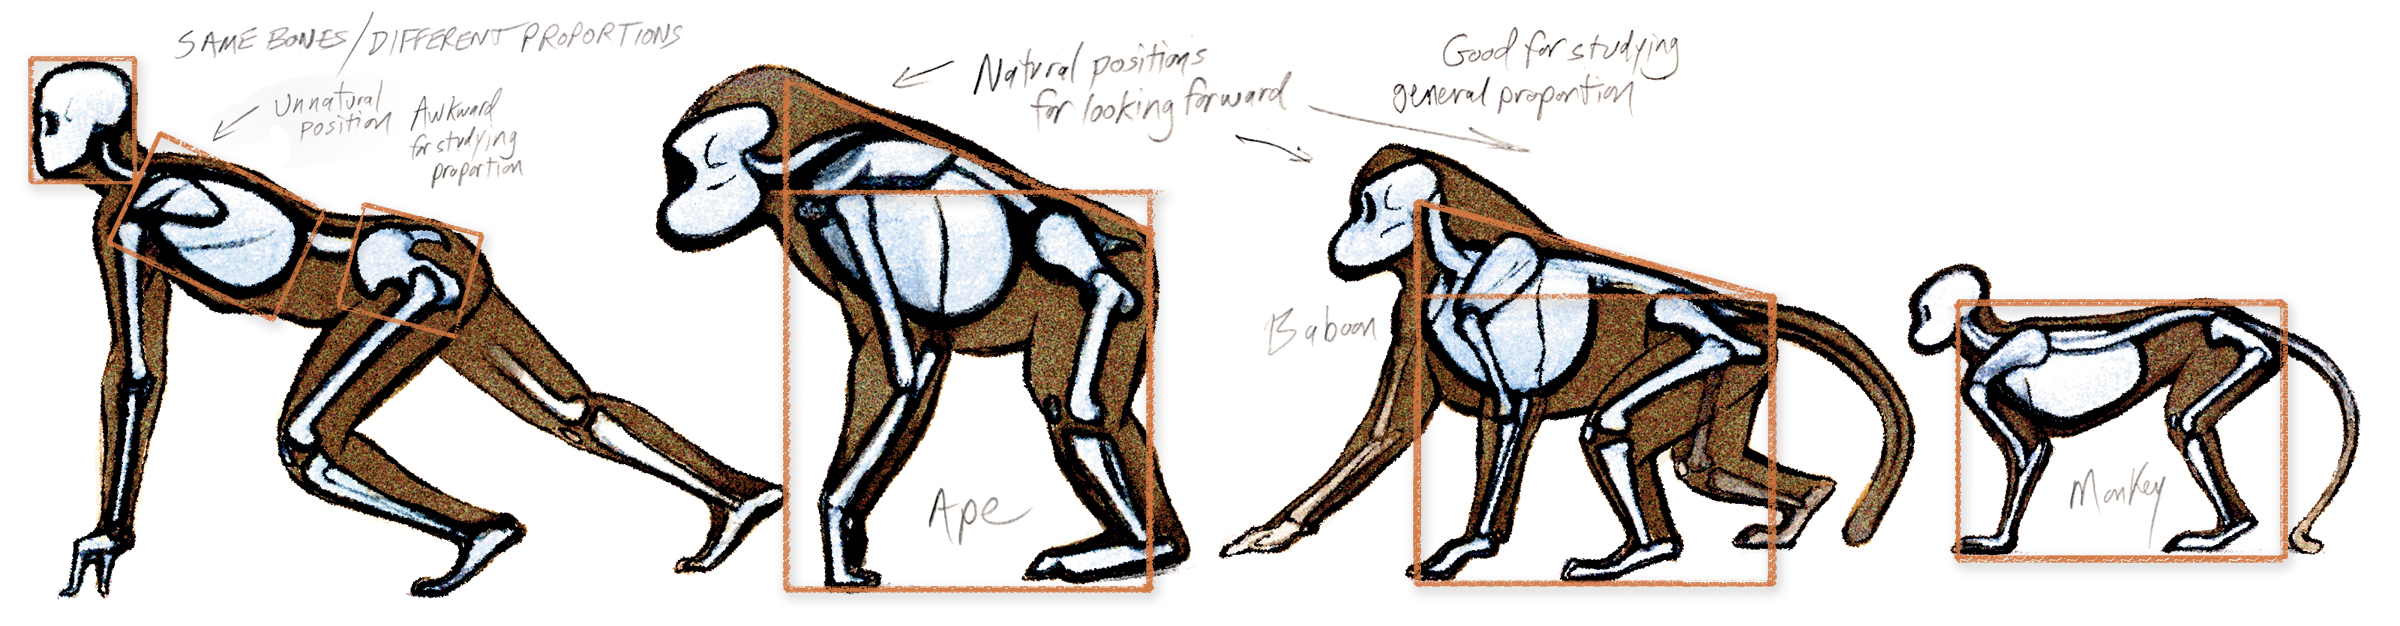 SAME BONES/DIFFERENT PROPORTIONS
Unnatural
position
Awkward
for studying
proportion
Natural positions
for looking forward
Good for studying
general proportion
Ape
Baboon
Monkey